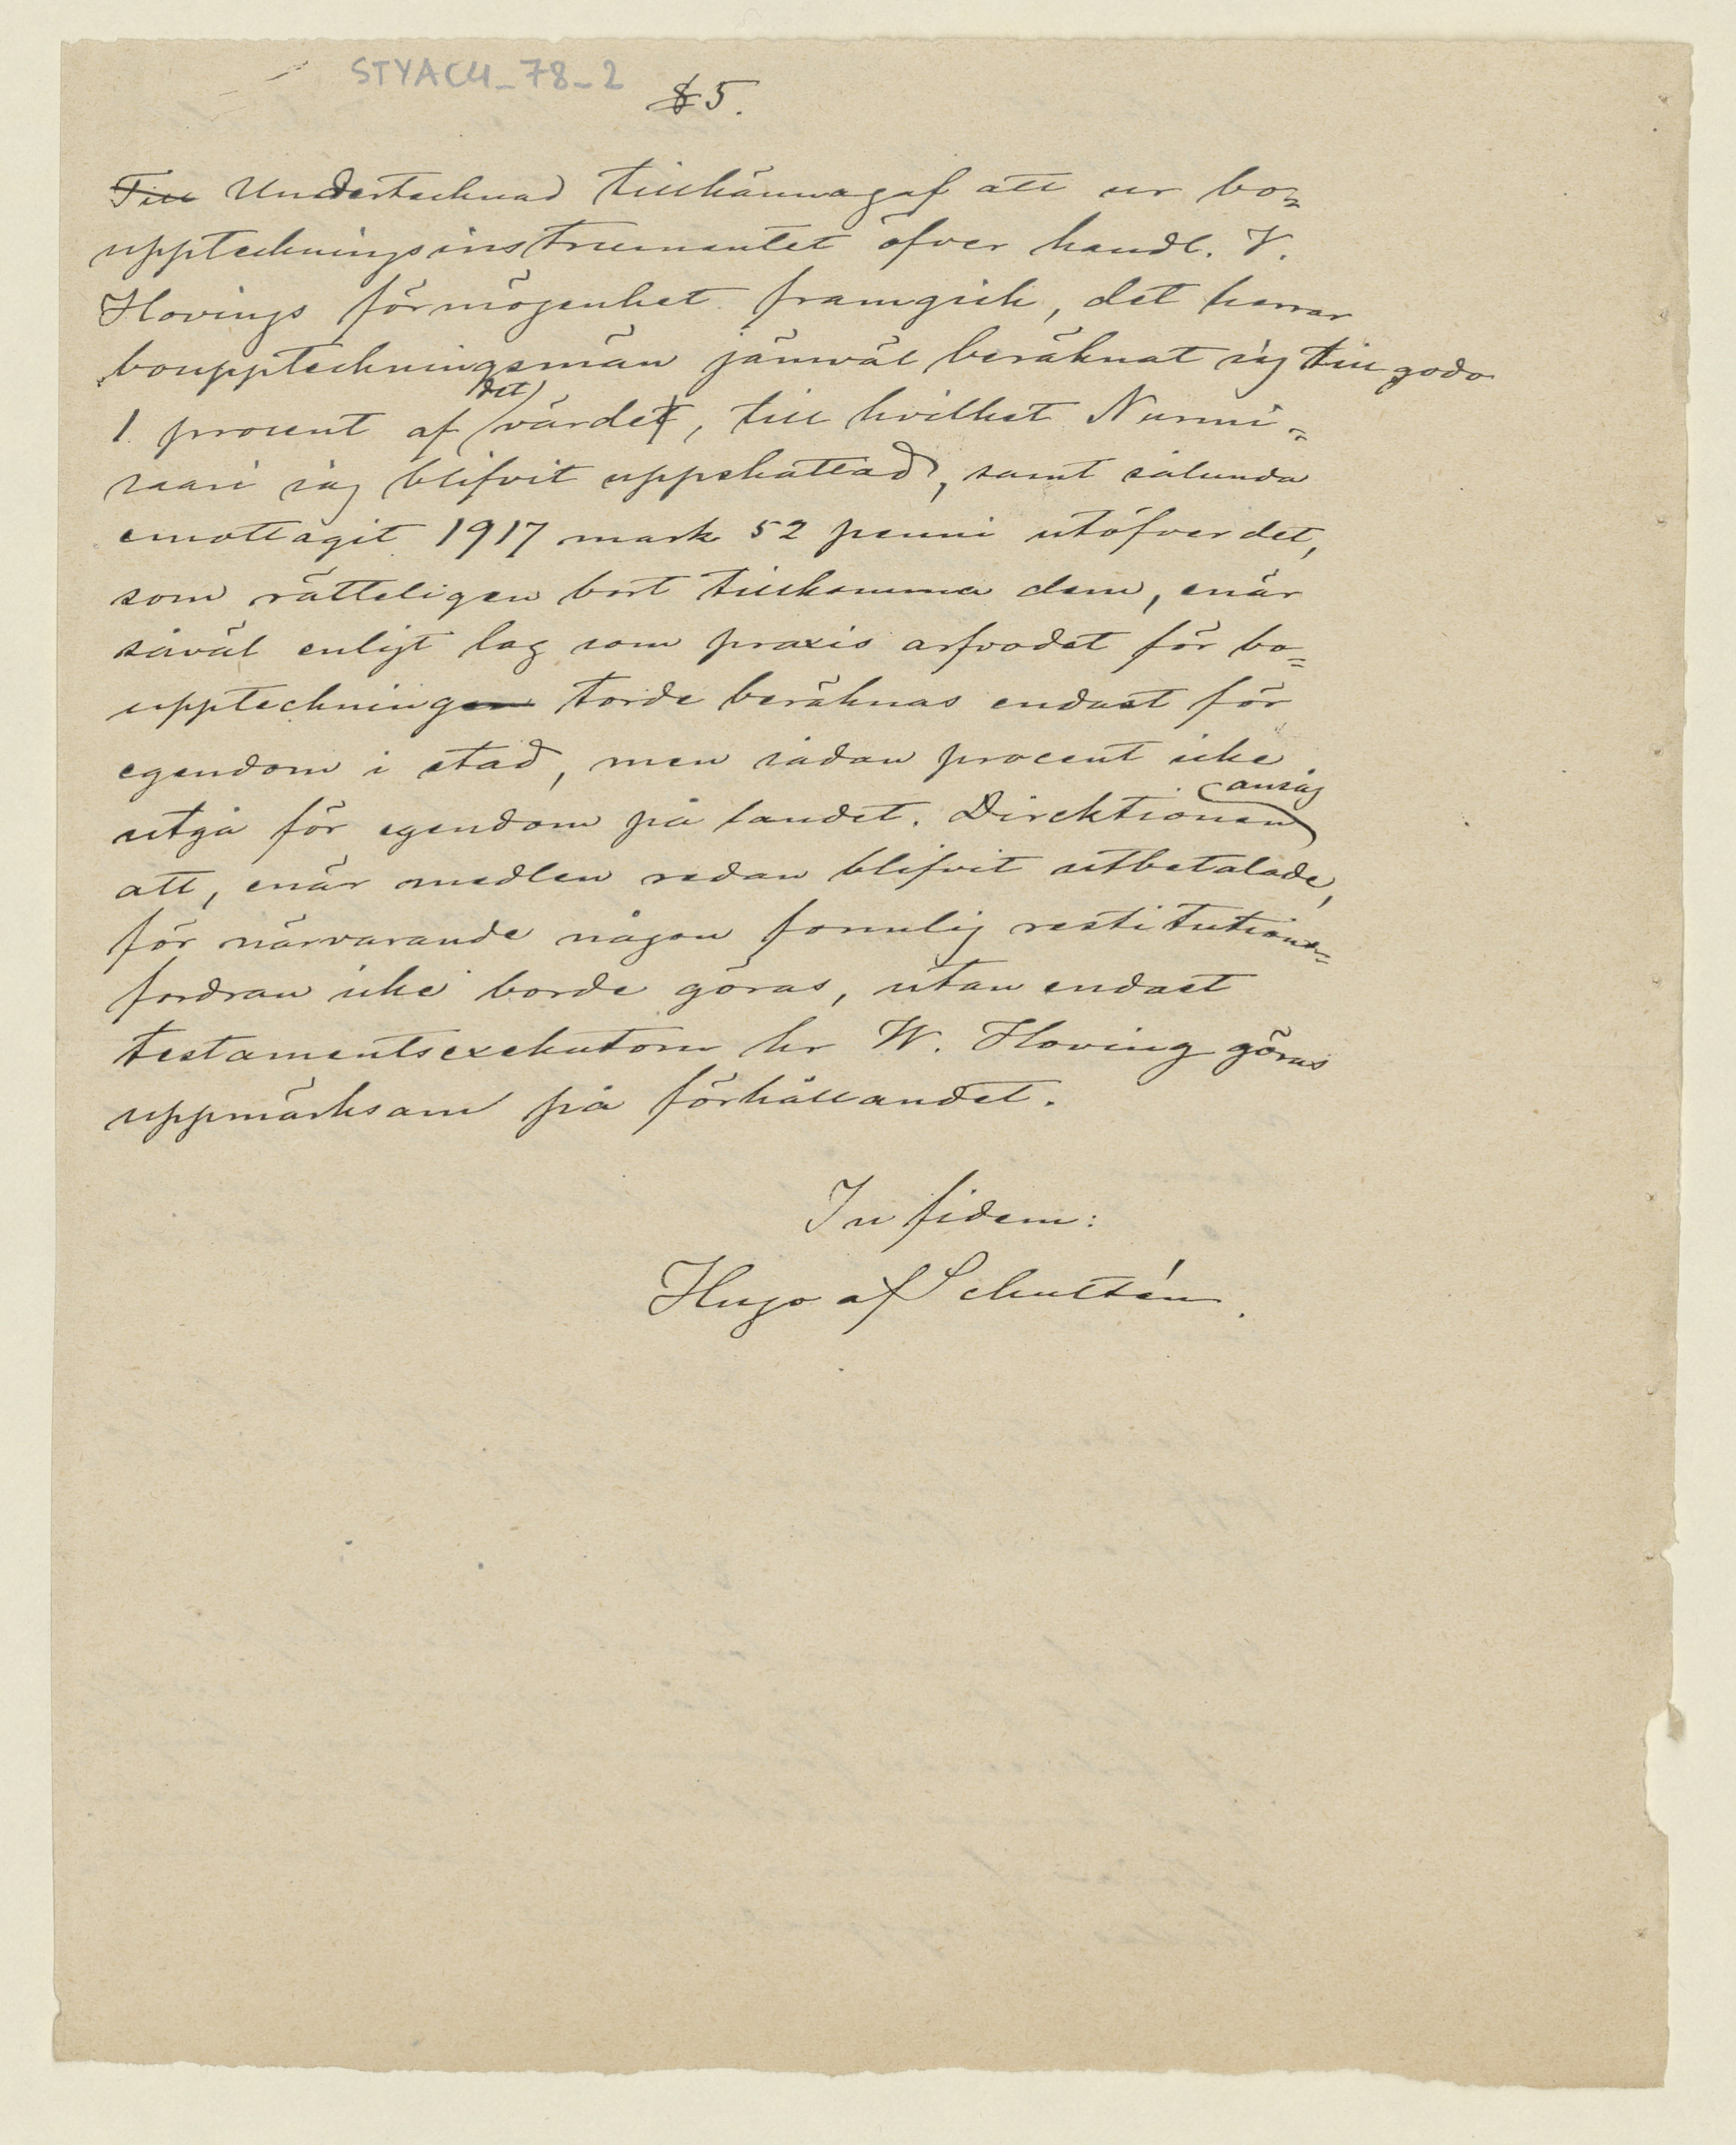 STYACU_78_2
§ 5.
Till Undertecknad tillkännagaf att ur bo=
uppteckningsinstrumentet öfver handl. V.
Hovings förmögenhet framgick, det herrar
bouppteckningsmän jämväl beräknat sig till godo
det
1 procent af värdet, till hvilket Nurmi=
saari sig blifvit uppskattad, samt sålunda
emottagit 1917 mark 52 penni utöfver det,
som rätteligen bort tillkomma dem, enär
såväl enligt lag som praxis arfvodet för bo=
uppteckningen torde beräknas endast för
egendom i stad, men sådan procent icke
ansåg
utgå för egendom på landet. Direktionen
att, enär medlen redan blifvit utbetalade,
för närvarande någon formlig restitutions=
fordran icke borde göras, utan endast
testamentsexekutorn hr W. Hoving göras
uppmärksam på förhållandet.
In fidem:
Hugo af Schultén.